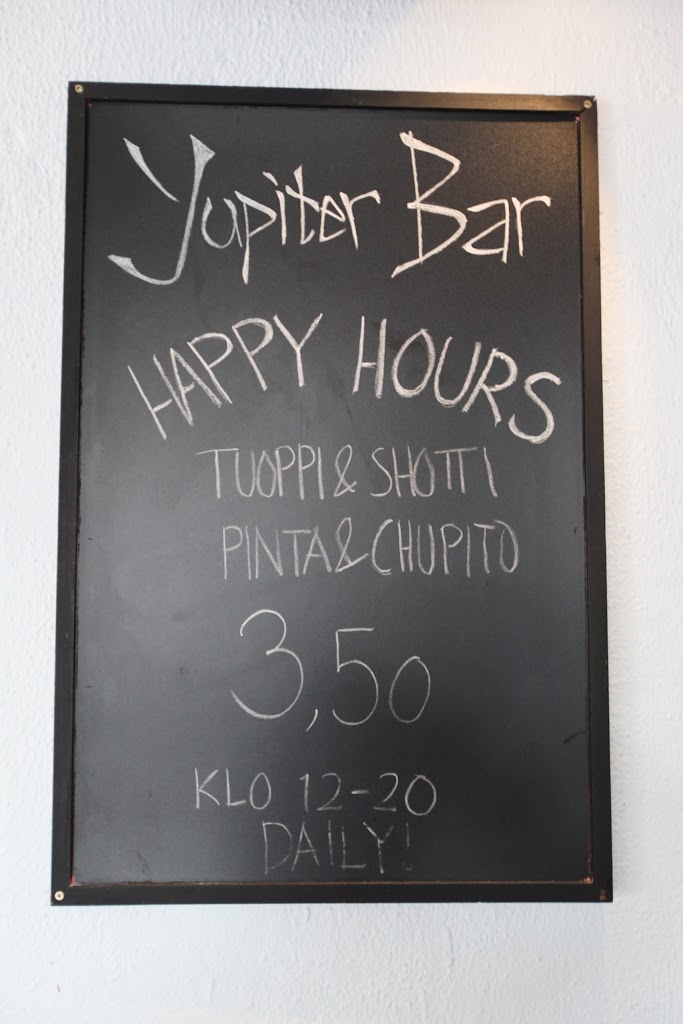 Yupiter Bar
HAPPY HOURS
TUOPPI & SHOTTI
PINTA & CHUPITO
3,50
KLO 12-20
DAILY!